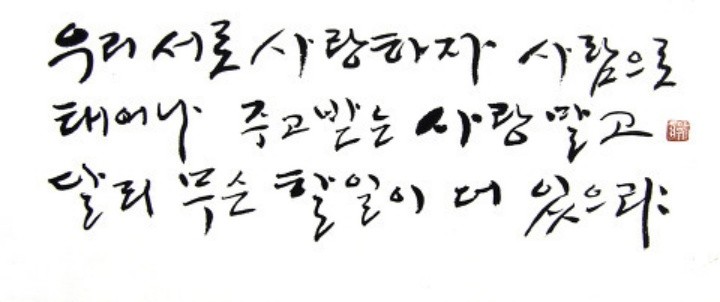 우리 서로 사랑하자 사람으로
태어나 주고받는 사랑 말고
달리 무슨 할일이 더 있으랴